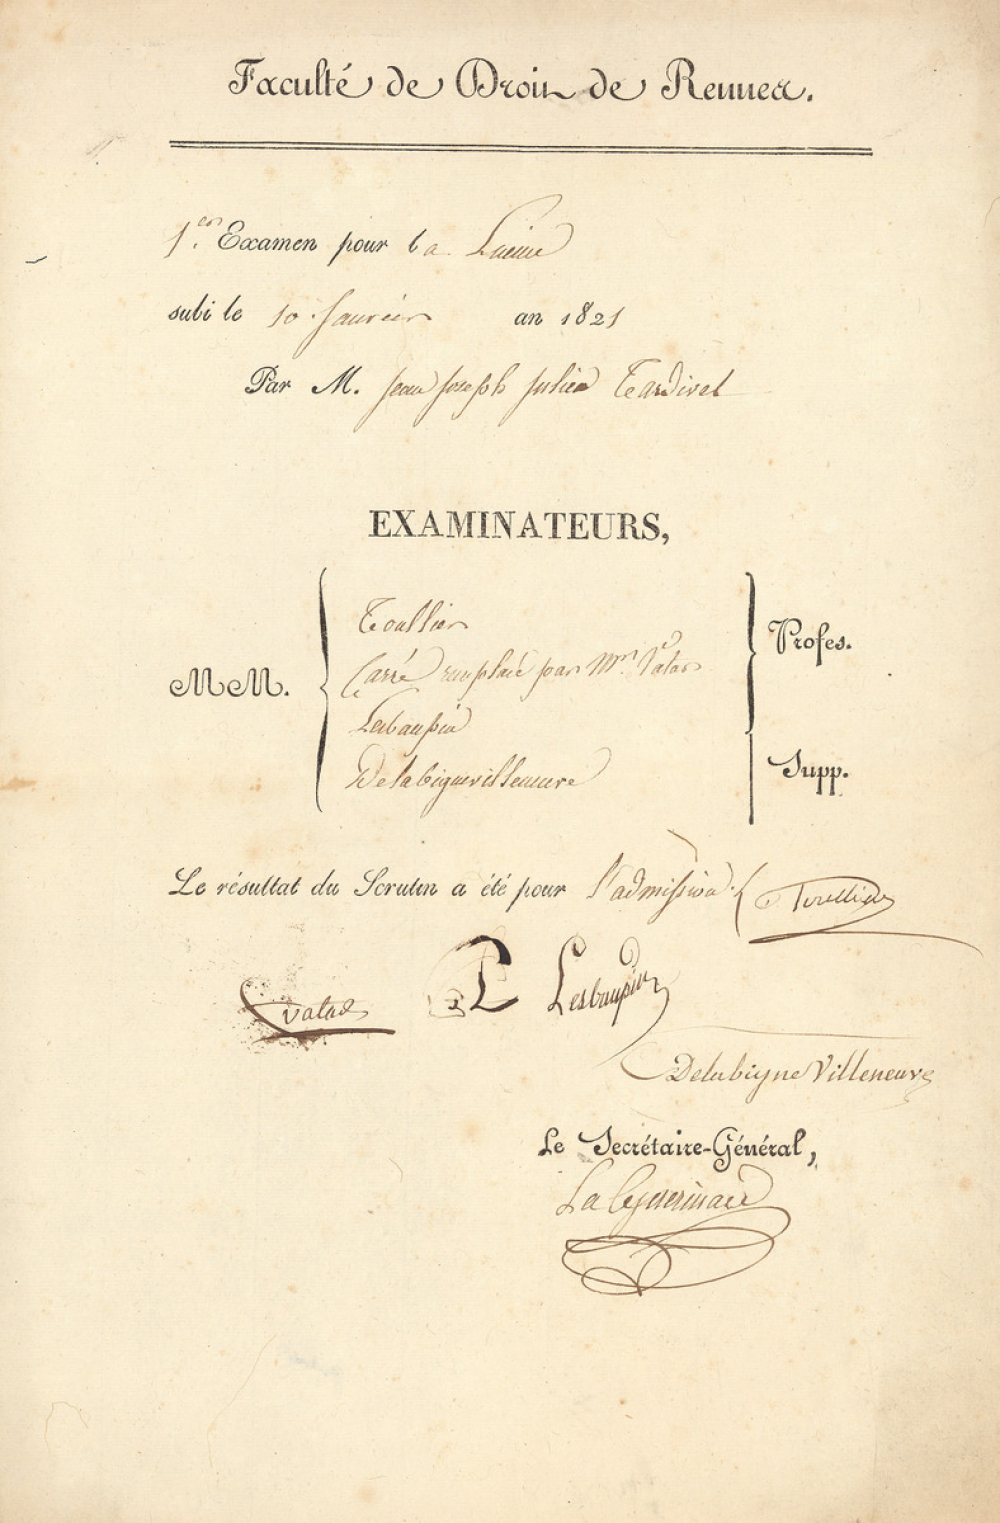 Faculté de Droit de Rennes.
1.er Examen pour la Licence
subi le 10 Janvier an 1821
Par M. Jean Joseph Julien Tardivel
EXAMINATEURS,
MM.
Toullier
Carré remplacé par Mr. Vatar
Profes.
Lesbaupin
Delabigne villeneuve
Supp.
Le résultat du Scrutin a été pour l'admission.
Toullier
Vatar
Lesbaupin
Delabigne Villeneuve
Le Secrétaire-Général,